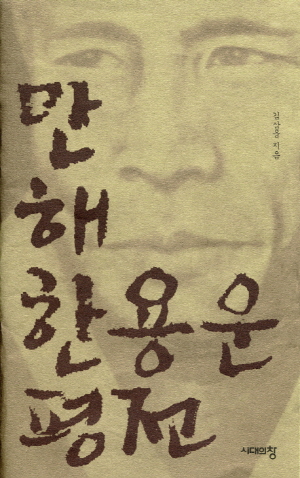 만
해
한용운
평전
김삼웅 지음
시대의창